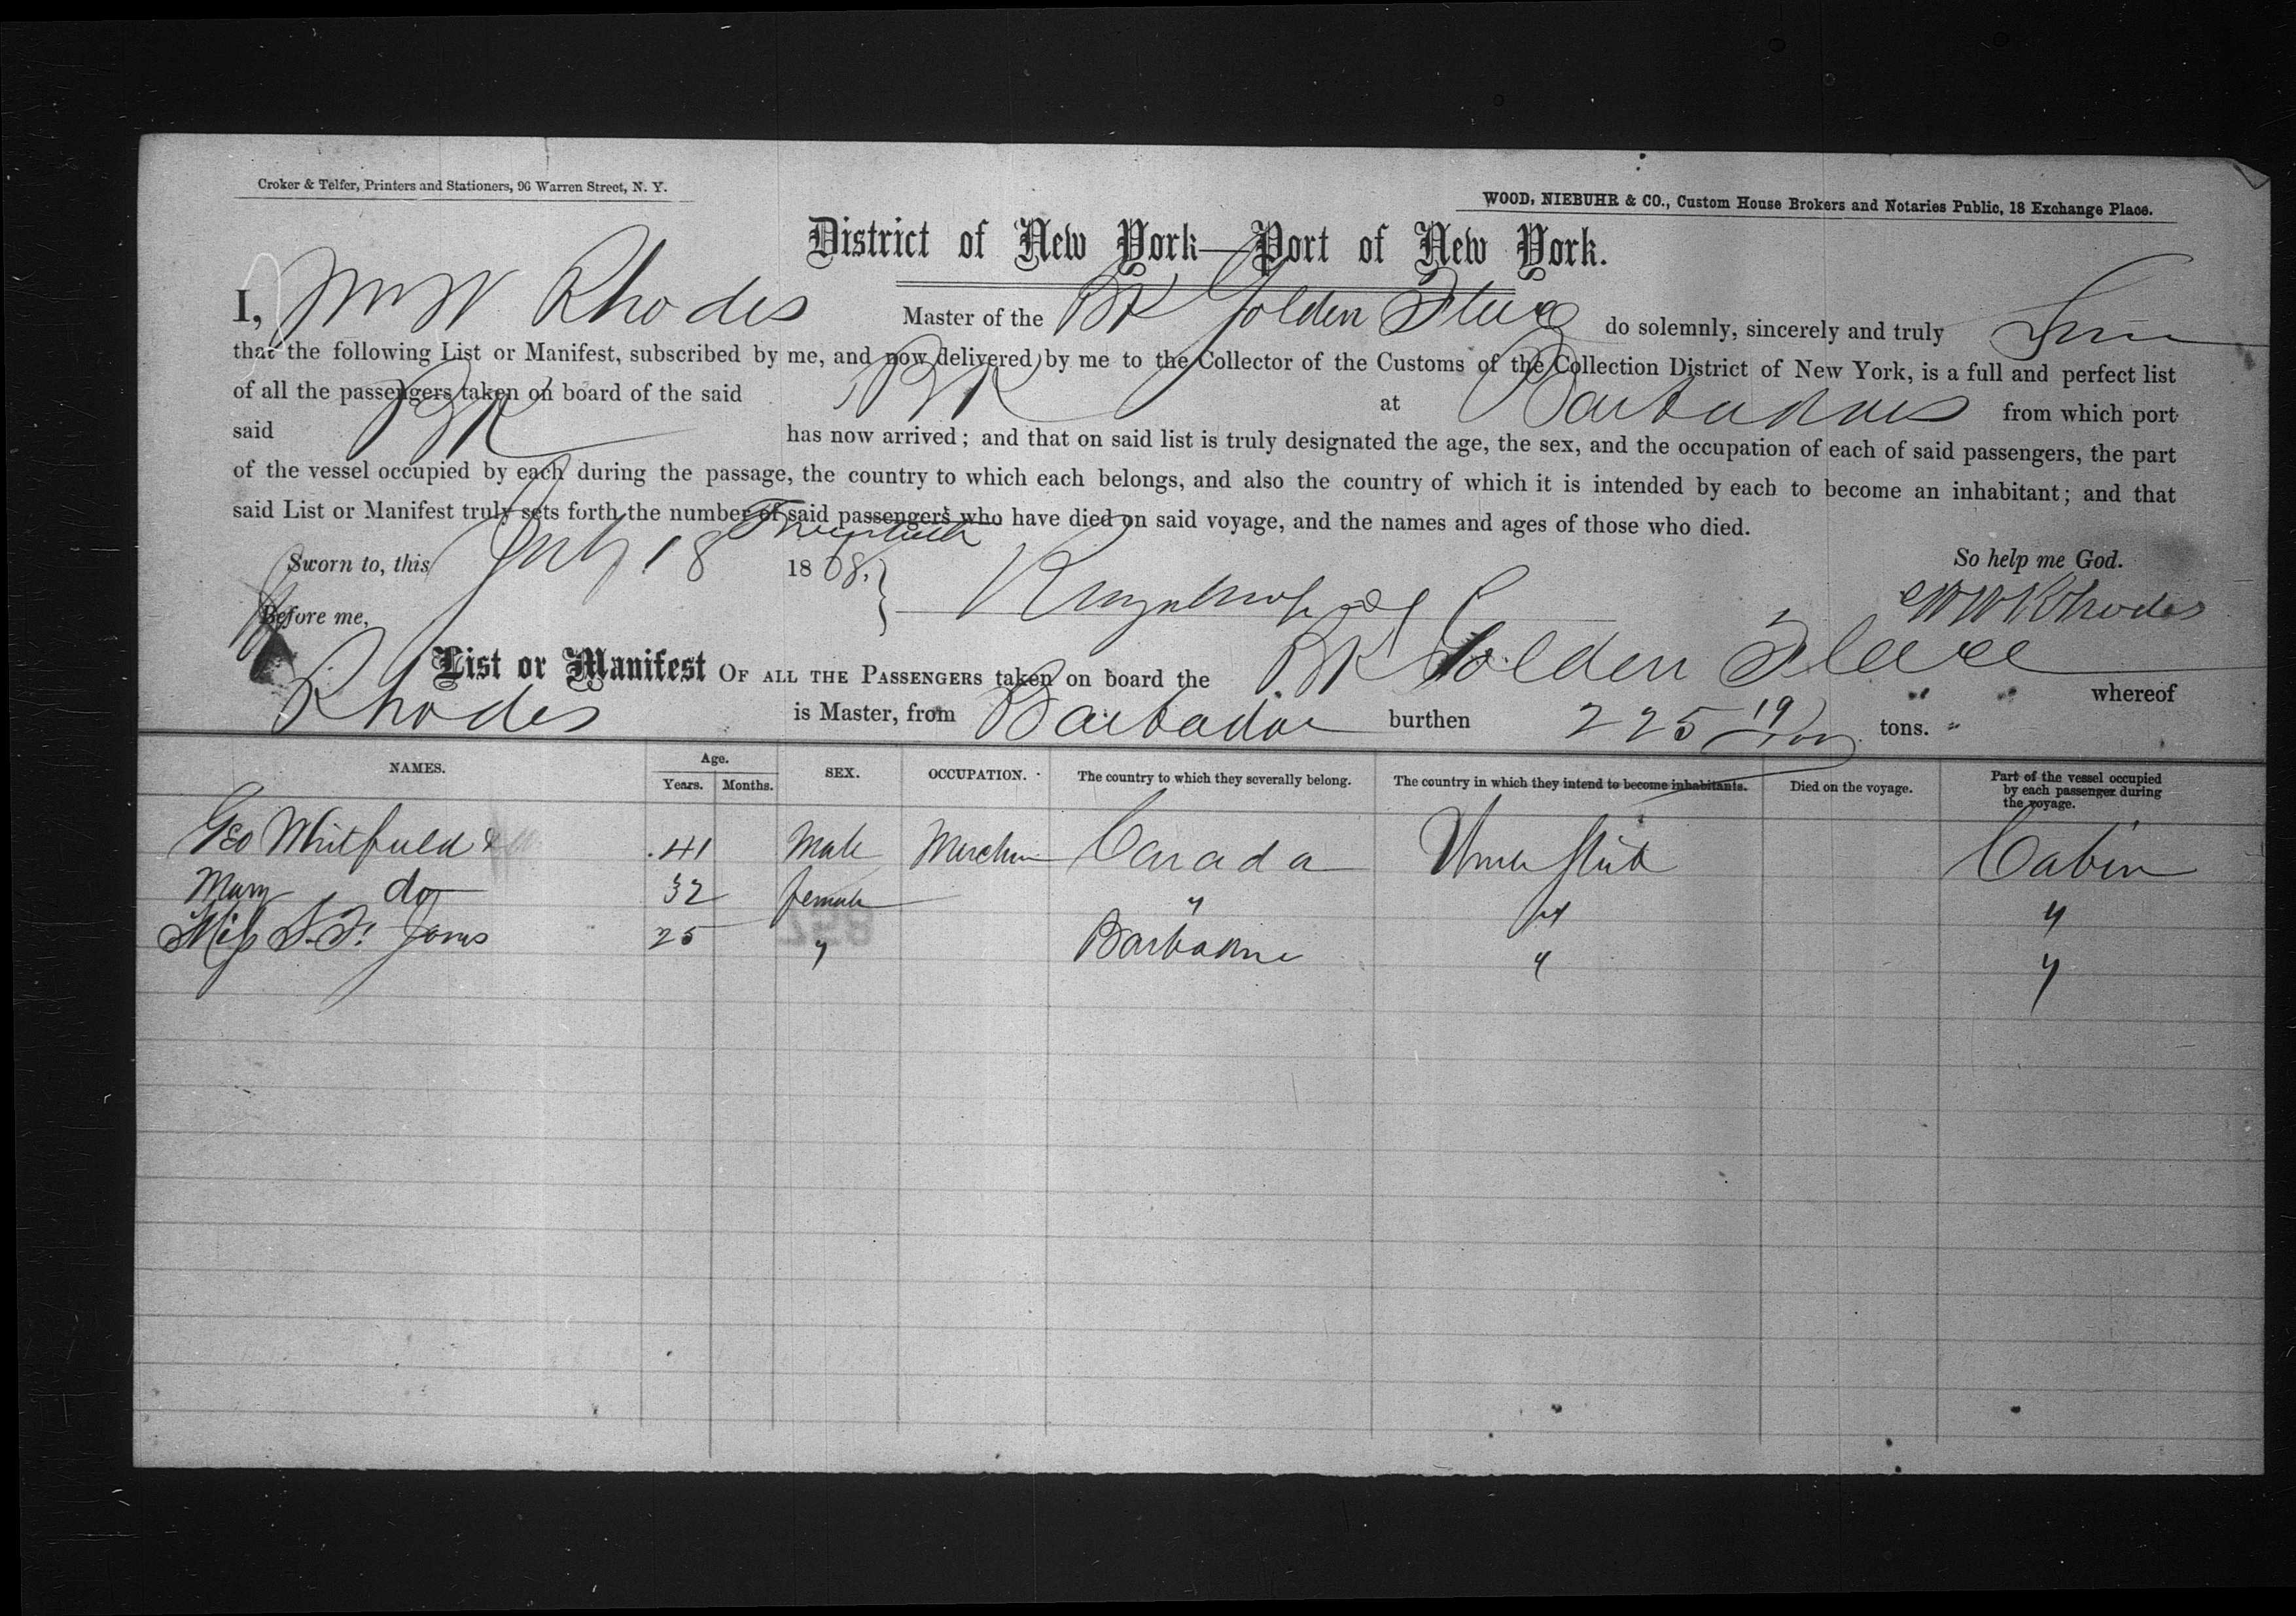 Croker & Telfer, Printers and Stationers, 96 Warren Street, N. Y.
WOOD, NIEBUHR & CO., Custom House Brokers and Notaries Public, 18 Exchange Place.
District of New York—Port of New York.
I, Wm W Rhodes Master of the BK Golden Fleece do solemnly, sincerely and truly
that the following List or Manifest, subscribed by me, and now delivered by me to the Collector of the Customs of the Collection District of New York, is a full and perfect list
of all the passengers taken on board of the said BK at Barbadoes from which port
said BK has now arrived; and that on said list is truly designated the age, the sex, and the occupation of each of said passengers, the part
of the vessel occupied by each during the passage, the country to which each belongs, and also the country of which it is intended by each to become an inhabitant; and that
said List or Manifest truly sets forth the number of said passengers who have died on said voyage, and the names and ages of those who died.
Sworn to, this July 18 1868. So help me God.
Before me, W W Rhodes
List or Manifest OF ALL THE PASSENGERS taken on board the BK Golden Fleece whereof
Rhodes is Master, from Barbadoe burthen 225 19/100 tons.
NAMES. Age. Years. Months. SEX. OCCUPATION. The country to which they severally belong. The country in which they intend to become inhabitants. Died on the voyage. Part of the vessel occupied by each passenger during the voyage.
Geo Whitfield & 41 Male Canada Cabin
Mary do 32 female " " "
Miss S. F. Jones 25 " Barbadoe " "